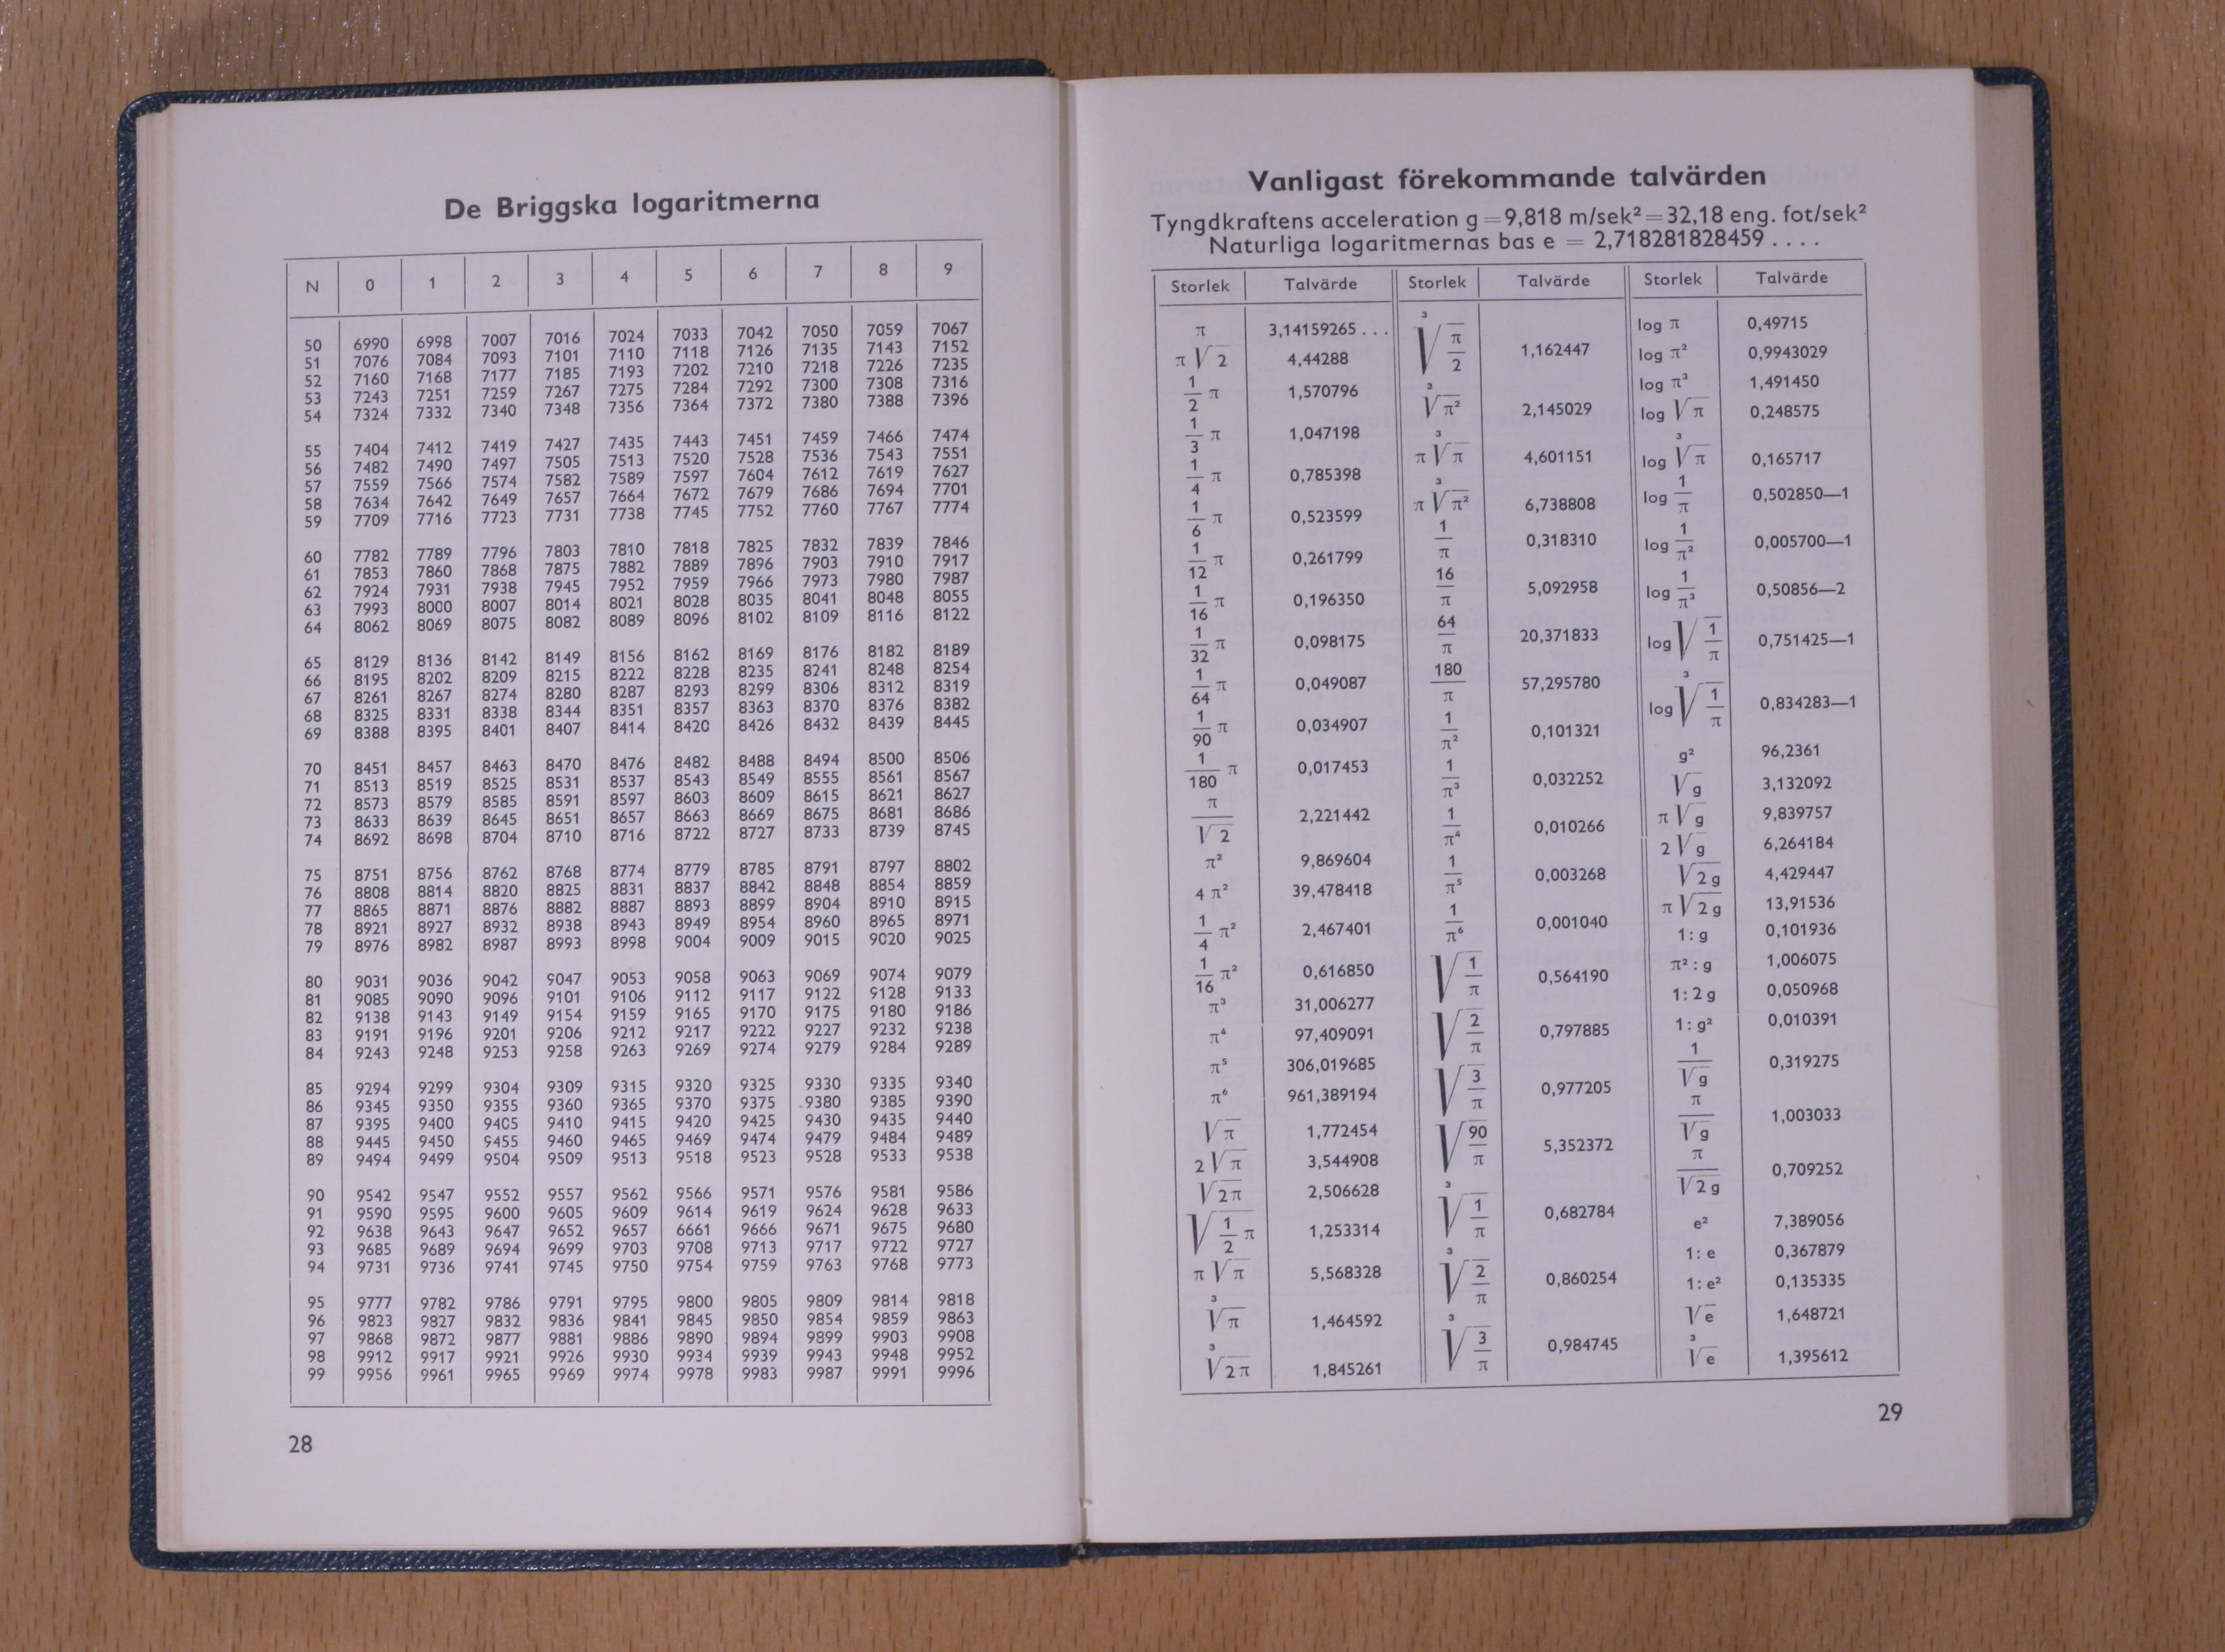 De Briggska logaritmerna
N 0 1 2 3 4 5 6 7 8 9
50 6990 6998 7007 7016 7024 7033 7042 7050 7059 7067
51 7076 7084 7093 7101 7110 7118 7126 7135 7143 7152
52 7160 7168 7177 7185 7193 7202 7210 7218 7226 7235
53 7243 7251 7259 7267 7275 7284 7292 7300 7308 7316
54 7324 7332 7340 7348 7356 7364 7372 7380 7388 7396
55 7404 7412 7419 7427 7435 7443 7451 7459 7466 7474
56 7482 7490 7497 7505 7513 7520 7528 7536 7543 7551
57 7559 7566 7574 7582 7589 7597 7604 7612 7619 7627
58 7634 7642 7649 7657 7664 7672 7679 7686 7694 7701
59 7709 7716 7723 7731 7738 7745 7752 7760 7767 7774
60 7782 7789 7796 7803 7810 7818 7825 7832 7839 7846
61 7853 7860 7868 7875 7882 7889 7896 7903 7910 7917
62 7924 7931 7938 7945 7952 7959 7966 7973 7980 7987
63 7993 8000 8007 8014 8021 8028 8035 8041 8048 8055
64 8062 8069 8075 8082 8089 8096 8102 8109 8116 8122
65 8129 8136 8142 8149 8156 8162 8169 8176 8182 8189
66 8195 8202 8209 8215 8222 8228 8235 8241 8248 8254
67 8261 8267 8274 8280 8287 8293 8299 8306 8312 8319
68 8325 8331 8338 8344 8351 8357 8363 8370 8376 8382
69 8388 8395 8401 8407 8414 8420 8426 8432 8439 8445
70 8451 8457 8463 8470 8476 8482 8488 8494 8500 8506
71 8513 8519 8525 8531 8537 8543 8549 8555 8561 8567
72 8573 8579 8585 8591 8597 8603 8609 8615 8621 8627
73 8633 8639 8645 8651 8657 8663 8669 8675 8681 8686
74 8692 8698 8704 8710 8716 8722 8727 8733 8739 8745
75 8751 8756 8762 8768 8774 8779 8785 8791 8797 8802
76 8808 8814 8820 8825 8831 8837 8842 8848 8854 8859
77 8865 8871 8876 8882 8887 8893 8899 8904 8910 8915
78 8921 8927 8932 8938 8943 8949 8954 8960 8965 8971
79 8976 8982 8987 8993 8998 9004 9009 9015 9020 9025
80 9031 9036 9042 9047 9053 9058 9063 9069 9074 9079
81 9085 9090 9096 9101 9106 9112 9117 9122 9128 9133
82 9138 9143 9149 9154 9159 9165 9170 9175 9180 9186
83 9191 9196 9201 9206 9212 9217 9222 9227 9232 9238
84 9243 9248 9253 9258 9263 9269 9274 9279 9284 9289
85 9294 9299 9304 9309 9315 9320 9325 9330 9335 9340
86 9345 9350 9355 9360 9365 9370 9375 9380 9385 9390
87 9395 9400 9405 9410 9415 9420 9425 9430 9435 9440
88 9445 9450 9455 9460 9465 9469 9474 9479 9484 9489
89 9494 9499 9504 9509 9513 9518 9523 9528 9533 9538
90 9542 9547 9552 9557 9562 9566 9571 9576 9581 9586
91 9590 9595 9600 9605 9609 9614 9619 9624 9628 9633
92 9638 9643 9647 9652 9657 6661 9666 9671 9675 9680
93 9685 9689 9694 9699 9703 9708 9713 9717 9722 9727
94 9731 9736 9741 9745 9750 9754 9759 9763 9768 9773
95 9777 9782 9786 9791 9795 9800 9805 9809 9814 9818
96 9823 9827 9832 9836 9841 9845 9850 9854 9859 9863
97 9868 9872 9877 9881 9886 9890 9894 9899 9903 9908
98 9912 9917 9921 9926 9930 9934 9939 9943 9948 9952
99 9956 9961 9965 9969 9974 9978 9983 9987 9991 9996
28
Vanligast förekommande talvärden
Tyngdkraftens acceleration g = 9,818 m/sek² = 32,18 eng. fot/sek²
Naturliga logaritmernas bas e = 2,718281828459 . . . .
Storlek Talvärde Storlek Talvärde Storlek Talvärde
π 3,14159265 . . .
π √2 4,44288
1/2 π 1,570796
1/3 π 1,047198
1/4 π 0,785398
1/6 π 0,523599
1/12 π 0,261799
1/16 π 0,196350
1/32 π 0,098175
1/64 π 0,049087
1/90 π 0,034907
1/180 π 0,017453
π/√2 2,221442
π² 9,869604
4 π² 39,478418
1/4 π² 2,467401
1/16 π² 0,616850
π³ 31,006277
π⁴ 97,409091
π⁵ 306,019685
π⁶ 961,389194
√π 1,772454
2 √π 3,544908
√2π 2,506628
√1/2 π 1,253314
π √π 5,568328
³√π 1,464592
³√2π 1,845261
³√π/2 1,162447
³√π² 2,145029
π ³√π 4,601151
π ³√π² 6,738808
1/π 0,318310
16/π 5,092958
64/π 20,371833
180/π 57,295780
1/π² 0,101321
1/π³ 0,032252
1/π⁴ 0,010266
1/π⁵ 0,003268
1/π⁶ 0,001040
√1/π 0,564190
√2/π 0,797885
√3/π 0,977205
√90/π 5,352372
³√1/π 0,682784
³√2/π 0,860254
³√3/π 0,984745
log π 0,49715
log π² 0,9943029
log π³ 1,491450
log √π 0,248575
log ³√π 0,165717
log 1/π 0,502850—1
log 1/π² 0,005700—1
log 1/π³ 0,50856—2
log √1/π 0,751425—1
log ³√1/π 0,834283—1
g² 96,2361
√g 3,132092
π √g 9,839757
2 √g 6,264184
√2g 4,429447
π √2g 13,91536
1 : g 0,101936
π² : g 1,006075
1 : 2 g 0,050968
1 : g² 0,010391
1/√g 0,319275
π/√g 1,003033
π/√2g 0,709252
e² 7,389056
1 : e 0,367879
1 : e² 0,135335
√e 1,648721
³√e 1,395612
29